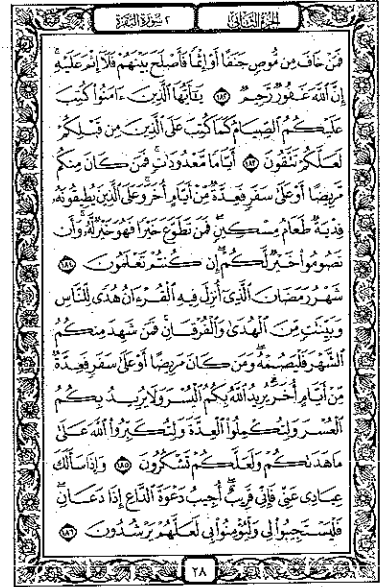 الجزء الثاني
٢ سورة البقرة
فَمَنْ خَافَ مِن مُّوصٍ جَنَفًا أَوْ إِثْمًا فَأَصْلَحَ بَيْنَهُمْ فَلَآ إِثْمَ عَلَيْهِ
إِنَّ ٱللَّهَ غَفُورٌ رَّحِيمٌ ١٨٢ يَٰٓأَيُّهَا ٱلَّذِينَ ءَامَنُوا۟ كُتِبَ
عَلَيْكُمُ ٱلصِّيَامُ كَمَا كُتِبَ عَلَى ٱلَّذِينَ مِن قَبْلِكُمْ
لَعَلَّكُمْ تَتَّقُونَ ١٨٣ أَيَّامًا مَّعْدُودَٰتٍ فَمَن كَانَ مِنكُم
مَّرِيضًا أَوْ عَلَىٰ سَفَرٍ فَعِدَّةٌ مِّنْ أَيَّامٍ أُخَرَ وَعَلَى ٱلَّذِينَ يُطِيقُونَهُۥ
فِدْيَةٌ طَعَامُ مِسْكِينٍ فَمَن تَطَوَّعَ خَيْرًا فَهُوَ خَيْرٌ لَّهُۥ وَأَن
تَصُومُوا۟ خَيْرٌ لَّكُمْ إِن كُنتُمْ تَعْلَمُونَ ١٨٤
شَهْرُ رَمَضَانَ ٱلَّذِىٓ أُنزِلَ فِيهِ ٱلْقُرْءَانُ هُدًى لِّلنَّاسِ
وَبَيِّنَٰتٍ مِّنَ ٱلْهُدَىٰ وَٱلْفُرْقَانِ فَمَن شَهِدَ مِنكُمُ
ٱلشَّهْرَ فَلْيَصُمْهُ وَمَن كَانَ مَرِيضًا أَوْ عَلَىٰ سَفَرٍ فَعِدَّةٌ
مِّنْ أَيَّامٍ أُخَرَ يُرِيدُ ٱللَّهُ بِكُمُ ٱلْيُسْرَ وَلَا يُرِيدُ بِكُمُ
ٱلْعُسْرَ وَلِتُكْمِلُوا۟ ٱلْعِدَّةَ وَلِتُكَبِّرُوا۟ ٱللَّهَ عَلَىٰ
مَا هَدَىٰكُمْ وَلَعَلَّكُمْ تَشْكُرُونَ ١٨٥ وَإِذَا سَأَلَكَ
عِبَادِى عَنِّى فَإِنِّى قَرِيبٌ أُجِيبُ دَعْوَةَ ٱلدَّاعِ إِذَا دَعَانِ
فَلْيَسْتَجِيبُوا۟ لِى وَلْيُؤْمِنُوا۟ بِى لَعَلَّهُمْ يَرْشُدُونَ ١٨٦
٢٨